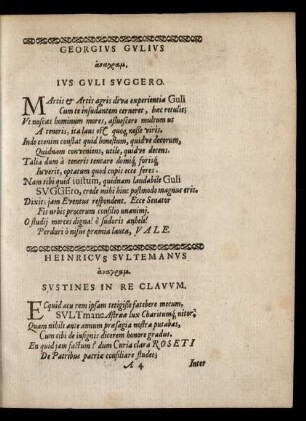 GEORGIVS GVLIVS
ἀναγραμ.
IVS GVLI SVGGERO.
MArtis & Artis agris diva experientia Guli
Cum te insudantem cerneret, hæc retulit;
Ut noscas hominum mores, assuescere multum ut
A teneris, ita laus est quoq; nosse viris.
Inde etenim constat quid honestum, quidve decorum,
Quidnam conveniens, utile, quidve decens.
Talia dum à teneris tentare domiq; forisq;
Iuverit, optatum quod cupis ecce feres.
Nam tibi quid iustum, quidnam laudabile Guli
SVGGEro, crede mihi hinc postmodo magnus eris.
Dixit: jam Eventus respondent. Ecce Senator
Fis urbis procerum consilio unanimi,
O studij merces digna! ô sudoris anheli!
Perduri ô nisus præmia lauta, VALE.
HEINRICVS SVLTEMANVS
ἀναγραμ.
SVSTINES IN RE CLAVVM.
ECquid acu rem ipsam tetigisse fatebere mecum,
SVLTmane Astrææ lux Charitumq; nitor?
Quam nihili ante annum præsagia nostra putabas,
Cum tibi de insignis dicerem honore gradus.
En quid jam factum? dum Curia clara ROSETI
De Patribus patriæ consiliare studet;
A 4
Inter